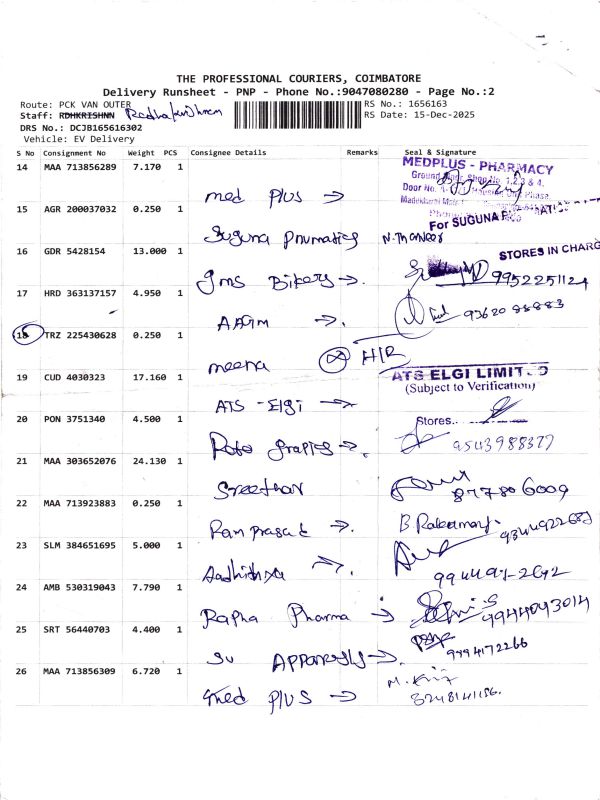 THE PROFESSIONAL COURIERS, COIMBATORE
Delivery Runsheet - PNP - Phone No.:9047080280 - Page No.:2
Route: PCK VAN OUTER RS No.: 1656163
Staff: RDHKRISHNN Radhakrishnan RS Date: 15-Dec-2025
DRS No.: DCJB165616302
Vehicle: EV Delivery
S No Consignment No Weight PCS Consignee Details Remarks Seal & Signature
14 MAA 713856289 7.170 1 med plus → MEDPLUS - PHARMACY
15 AGR 200037032 0.250 1 Suguna pnumatics For SUGUNA
16 GDR 5428154 13.000 1 gms Bikers → STORES IN CHARG 9952251124
17 HRD 363137157 4.950 1 AAGM → 93620 88883
18 TRZ 225430628 0.250 1 meena H/R
19 CUD 4030323 17.160 1 ATS - Elgi → ATS ELGI LIMITED
(Subject to Verification)
Stores..
20 PON 3751340 4.500 1 Roto grapics → 9543988377
21 MAA 303652076 24.130 1 Sreethar 877806009
22 MAA 713923883 0.250 1 Ram prasat →
23 SLM 384651695 5.000 1 Aadhithya → 994491-2692
24 AMB 530319043 7.790 1 Rapha Pharma → 9944093014
25 SRT 56440703 4.400 1 su Apparels → 9994172266
26 MAA 713856309 6.720 1 med plus →